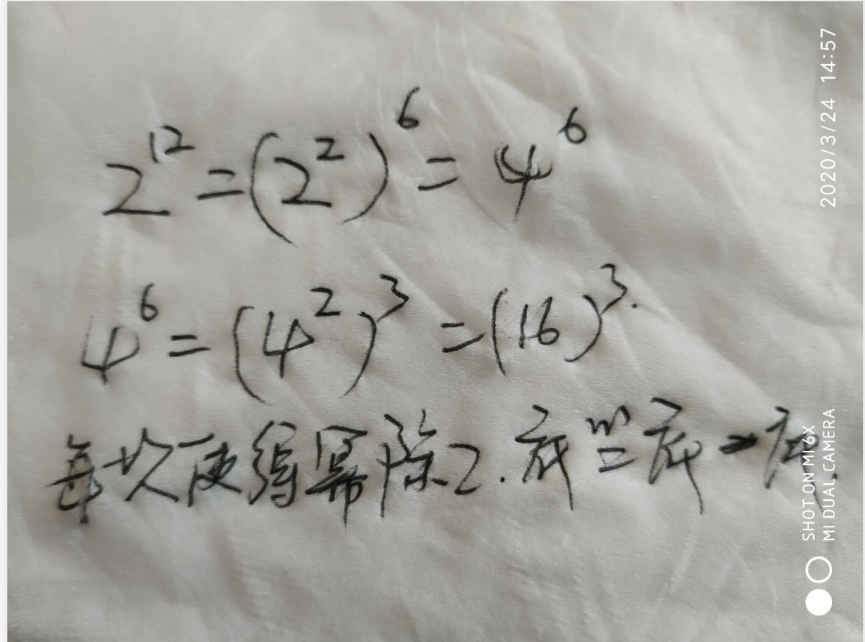 2^12 = (2^2)^6 = 4^6
4^6 = (4^2)^3 = (16)^3.
每次使得幂除2.底 = 底
2020/3/24 14:57
SHOT ON MI 6X
MI DUAL CAMERA